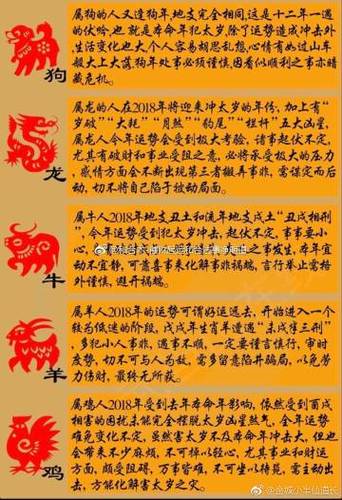 属狗的人又逢狗年,地支完全相同,这是十二年一遇
的伏吟,也就是本命年犯太岁,除了运势造成冲击外
,生活变化也大,个人容易胡思乱想,心情有如过山车
般大上大落,狗年处事必须谨慎,因看似顺利之事亦暗
藏危机。
狗
属龙的人在2018年将迎来冲太岁的年份,加上有“
岁破”“大耗”“月煞”“豹尾”“栏杆”五大凶星,
属龙人今年运势会受到极大考验,诸事起伏不定,
尤其有破财和事业受阻之意,必将承受极大的压力
,感情方面会不断出现第三者搬弄事非,常谋定而后
动,切不将自己陷于被动局面。
龙
属牛人2018年地支丑土和流年地支戌土“丑戌相刑
”,今年运势受到犯太岁冲击,起伏不定,事事要小
心,之事发生,本年宜
动不宜静,可靠喜事来化解事非祸端,言行举止需格
外谨慎,避开祸端。
牛
属羊人2018年的运势可谓好运远去,开始进入一个
较为低迷的阶段,戊戌年生肖羊遭遇“未戌等三刑”
,多犯小人事非,遇事不顺,一定要谨言慎行,审时
度势,切不可与人为敌,需多留意陷井骗局,以免劳
力伤财,最终无所获。
羊
属鸡人2018年受到去年本命年影响,依然受到酉戌
相害的困扰未能完全摆脱太岁凶星煞气,全年运势
难免变化不定,虽然害太岁不及本命年冲击大,但也
会带来不少麻烦,不可掉以轻心,尤其事业和财运
方面,颇受阻碍,万事皆难,不可坐以待毙,需主动出
击,方能化解害太岁之灾。
鸡
@金城小半仙道长